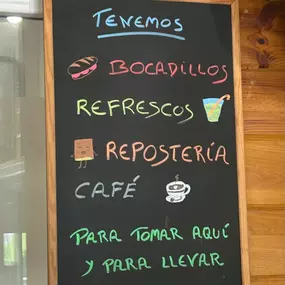 TENEMOS
BOCADILLOS
REFRESCOS
REPOSTERÍA
CAFÉ
PARA TOMAR AQUÍ
Y PARA LLEVAR